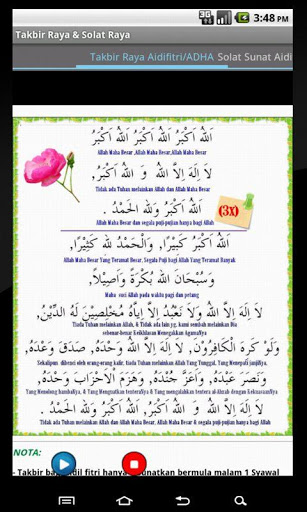 3:48 PM
Takbir Raya & Solat Raya
Takbir Raya Aidifitri/ADHA Solat Sunat Aidi
اَللهُ اَكْبَرُ اَللهُ اَكْبَرُ اَللهُ اَكْبَرُ
Allah Maha Besar ,Allah Maha Besar,Allah Maha Besar
لاَ إِلَهَ إِلاَّ اللهُ وَ اللهُ أَكْبَرُ,
Tidak ada Tuhan melainkan Allah dan Allah Maha Besar
اَللهُ أَكْبَرُ وَللهِ الْحَمْدُ .
(3x)
Allah Maha Besar dan segala puji-pujian hanya bagi Allah
اَللهُ أَكْبَرُ كَبِيْرًا, وَالْحَمْدُ للهِ كَثِيْرًا,
Allah Maha Besar Yang Teramat Besar, Segala Puji bagi Allah Yang Teramat Banyak
وَسُبْحَانَ اللهِ بُكْرَةً وَأَصِيْلاً,
Maha suci Allah pada waktu pagi dan petang
لاَ إِلَهَ إِلاَّ اللهُ وَلاَ نَعْبُدُ إِلاَّ إِيَّاهُ مُخْلِصِيْنَ لَهُ الدِّيْنَ,
Tiada Tuhan melainkan Allah, & Tidak ada lain yg. kami sembah melainkan Dia
sebenar-benar Keikhlasan Menegakkan AgamaNya
وَلَوْ كَرِهَ الْكَافِرُوْنَ, لاَ إِلَهَ إِلاَّ اللهُ وَحْدَهُ, صَدَقَ وَعْدَهُ,
Sekalipun dibenci oleh orang-orang kafir, tiada Tuhan melainkan Allah Yang Tunggal, Yang Menepati janjiNya,
وَنَصَرَ عَبْدَهُ, وَأَعَزَّ جُنْدَهُ, وَهَزَمَ الْأَحْزَابَ وَحْدَهُ,
Yang Menolong hambaNya, & Yang Mengagungkan tenteraNya & Yang mengalahkan tentera al-Ahzab dengan KeesaanNya
لاَ إِلَهَ إِلاَّ اللهُ وَ اللهُ أَكْبَرُ, اَللهُ أَكْبَرُ وَللهِ الْحَمْدُ .
Tidak ada Tuhan melainkan Allah dan Allah Maha Besar, Allah Maha Besar & segala puji-pujian hanya bagi Allah
NOTA:
- Takbir ba dil fitri hanya unatkan bermula malam 1 Syawal